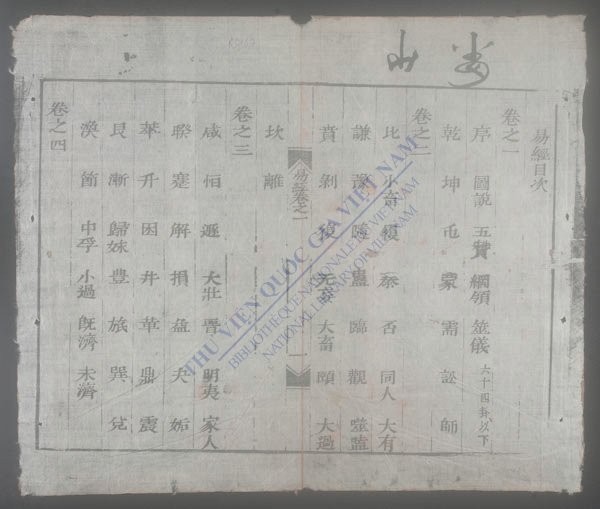 易經目次
卷之一
序 圖說 五贊 綱領 筮儀 六十四卦以下
乾 坤 屯 蒙 需 訟 師
卷之二
比 小畜 履 泰 否 同人 大有
謙 豫 隨 蠱 臨 觀 噬嗑
賁 剝 復 无妄 大畜 頤 大過
易經卷之一
一
坎 離
卷之三
咸 恒 遯 大壯 晋 明夷 家人
睽 蹇 解 損 益 夬 姤
萃 升 困 井 革 鼎 震
艮 漸 歸妹 豊 旅 巽 兌
渙 節 中孚 小過 既濟 未濟
卷之四
THƯ VIỆN QUỐC GIA VIỆT NAM
BIBLIOTHÈQUE NATIONALE DU VIETNAM
NATIONAL LIBRARY OF VIETNAM